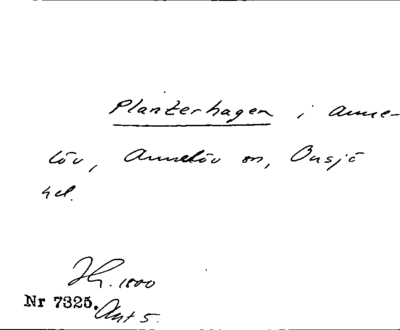 Planterhagen i Anne-
löv, Annelöv sn, Onsjö
hd.
Jh. 1800
Nr 7325.
Akt 5.